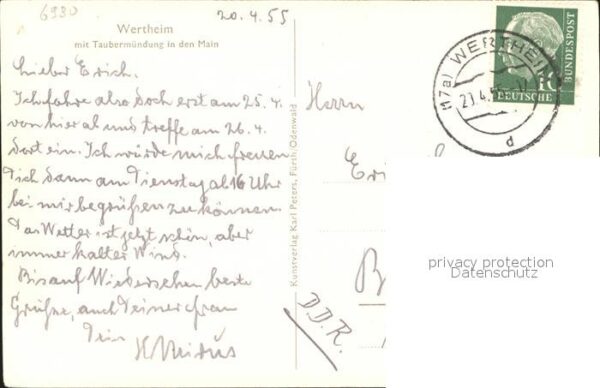 6980
20.4.55
Wertheim
mit Taubermündung in den Main
Lieber Erich.
Ich fahre also doch erst am 25.4.
von hier ab und treffe am 26.4.
dort ein. Ich würde mich freuen
Dich dann am Dienstag ab 16 Uhr
bei mir begrüßen zu können.
Das Wetter ist jetzt schön, aber
immer kalter Wind.
Bis auf Wiedersehen beste
Grüße, auch Deiner Frau
Dein
Kunstverlag Karl Peters, Fürth/Odenwald
Herrn
DDR.
(17a) WERTHEIM
d
10
DEUTSCHE
BUNDESPOST
privacy protection
Datenschutz